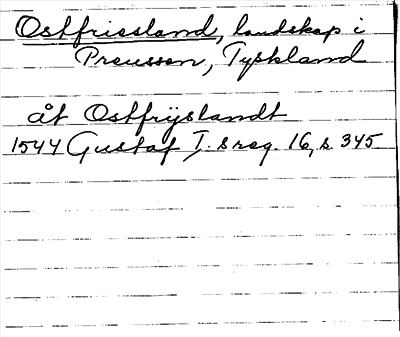 Ostfriesland, landskap i
Preussen, Tyskland
åt Ostfrijslandt
1544 Gustaf I:s reg. 16, s. 345